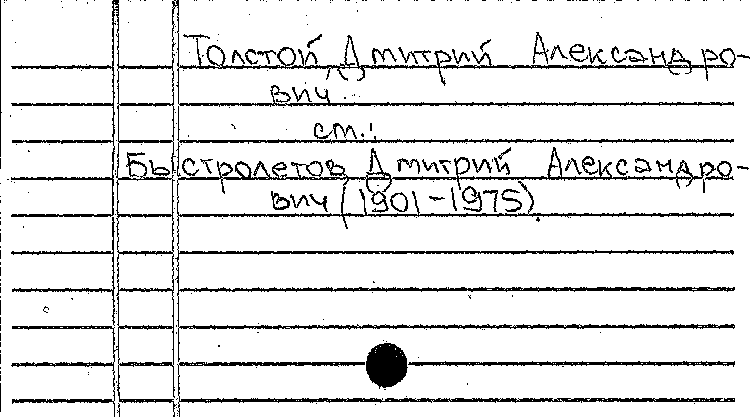 Толстой, Дмитрий Александро-
вич
см.:
Быстролетов Дмитрий Александро-
вич (1901-1975).